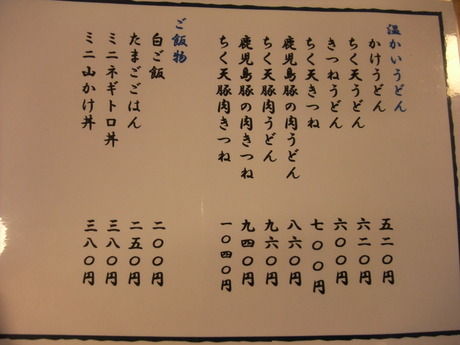 温かいうどん
かけうどん 五二〇円
ちく天うどん 六二〇円
きつねうどん 六〇〇円
ちく天きつね 七〇〇円
鹿児島豚の肉うどん 八六〇円
ちく天豚肉うどん 九六〇円
鹿児島豚の肉きつね 九四〇円
ちく天豚肉きつね 一〇四〇円
ご飯物
白ご飯 二〇〇円
たまごごはん 二五〇円
ミニネギトロ丼 三八〇円
ミニ山かけ丼 三八〇円